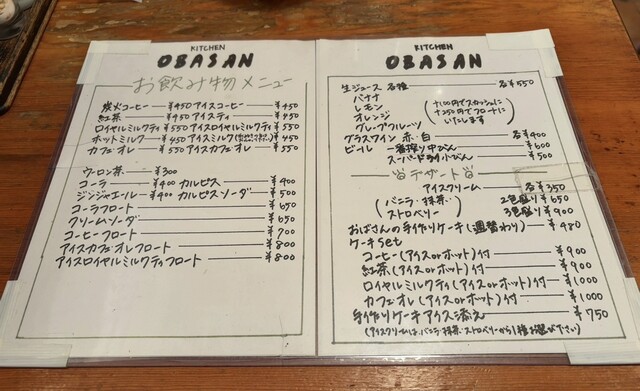 KITCHEN
OBASAN
お飲み物メニュー
炭火コーヒー ¥450 アイスコーヒー ¥450
紅茶 ¥450 アイスティ ¥450
ロイヤルミルクティ ¥550 アイスロイヤルミルクティ ¥550
ホットミルク ¥450 アイスミルク ¥450
カフェオレ ¥550 アイスカフェオレ ¥550
ウーロン茶 ¥300
コーラ ¥400 カルピス ¥400
ジンジャエール ¥400 カルピスソーダ ¥500
コーラフロート ¥650
クリームソーダ ¥650
コーヒーフロート ¥700
アイスカフェオレフロート ¥800
アイスロイヤルミルクティフロート ¥800
KITCHEN
OBASAN
生ジュース 各種 各¥550
バナナ
レモン
オレンジ
グレープフルーツ
(+100円でスカッシュに
+250円でフロートに
いたします)
グラスワイン 赤・白 各¥400
ビール 一番搾り中びん ¥600
スーパードライ小びん ¥500
デザート
アイスクリーム 各¥350
(バニラ・抹茶・
ストロベリー)
2色盛り ¥650
3色盛り ¥900
おばさんの手作りケーキ(週替わり) ¥480
ケーキset
コーヒー(アイスorホット)付 ¥900
紅茶(アイスorホット)付 ¥900
ロイヤルミルクティ(アイスorホット)付 ¥1000
カフェオレ(アイスorホット)付 ¥1000
手作りケーキアイス添え ¥750
(アイスクリームは、バニラ・抹茶・ストロベリーから1種お選び下さい)